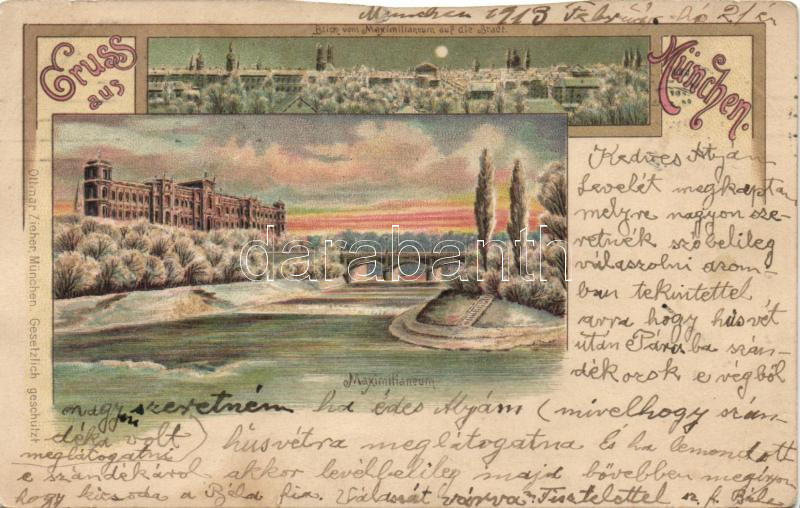 München 1913 Február hó 21én
Blick vom Maximilianeum auf die Stadt.
Gruss
aus
München.
Kedves Atyám
Levelét megkaptam
melyre nagyon sze-
retnék szóbelileg
válaszolni azom-
ban tekintettel
arra hogy húsvét
után Párisba szán-
dékozok e végből
darabanth
Maximilianeum
Ottmar Zieher, München. Gesetzlich geschützt
nagyon szeretném ha édes Atyám (mivelhogy szán-
déka volt húsvétra meglátogatna és ha lemondott
meglátogatni
e szándékáról akkor levélbelileg majd bővebben megirom
hogy kicsoda a Béla fia. Válaszát várva Tisztelettel sz. f. Béla